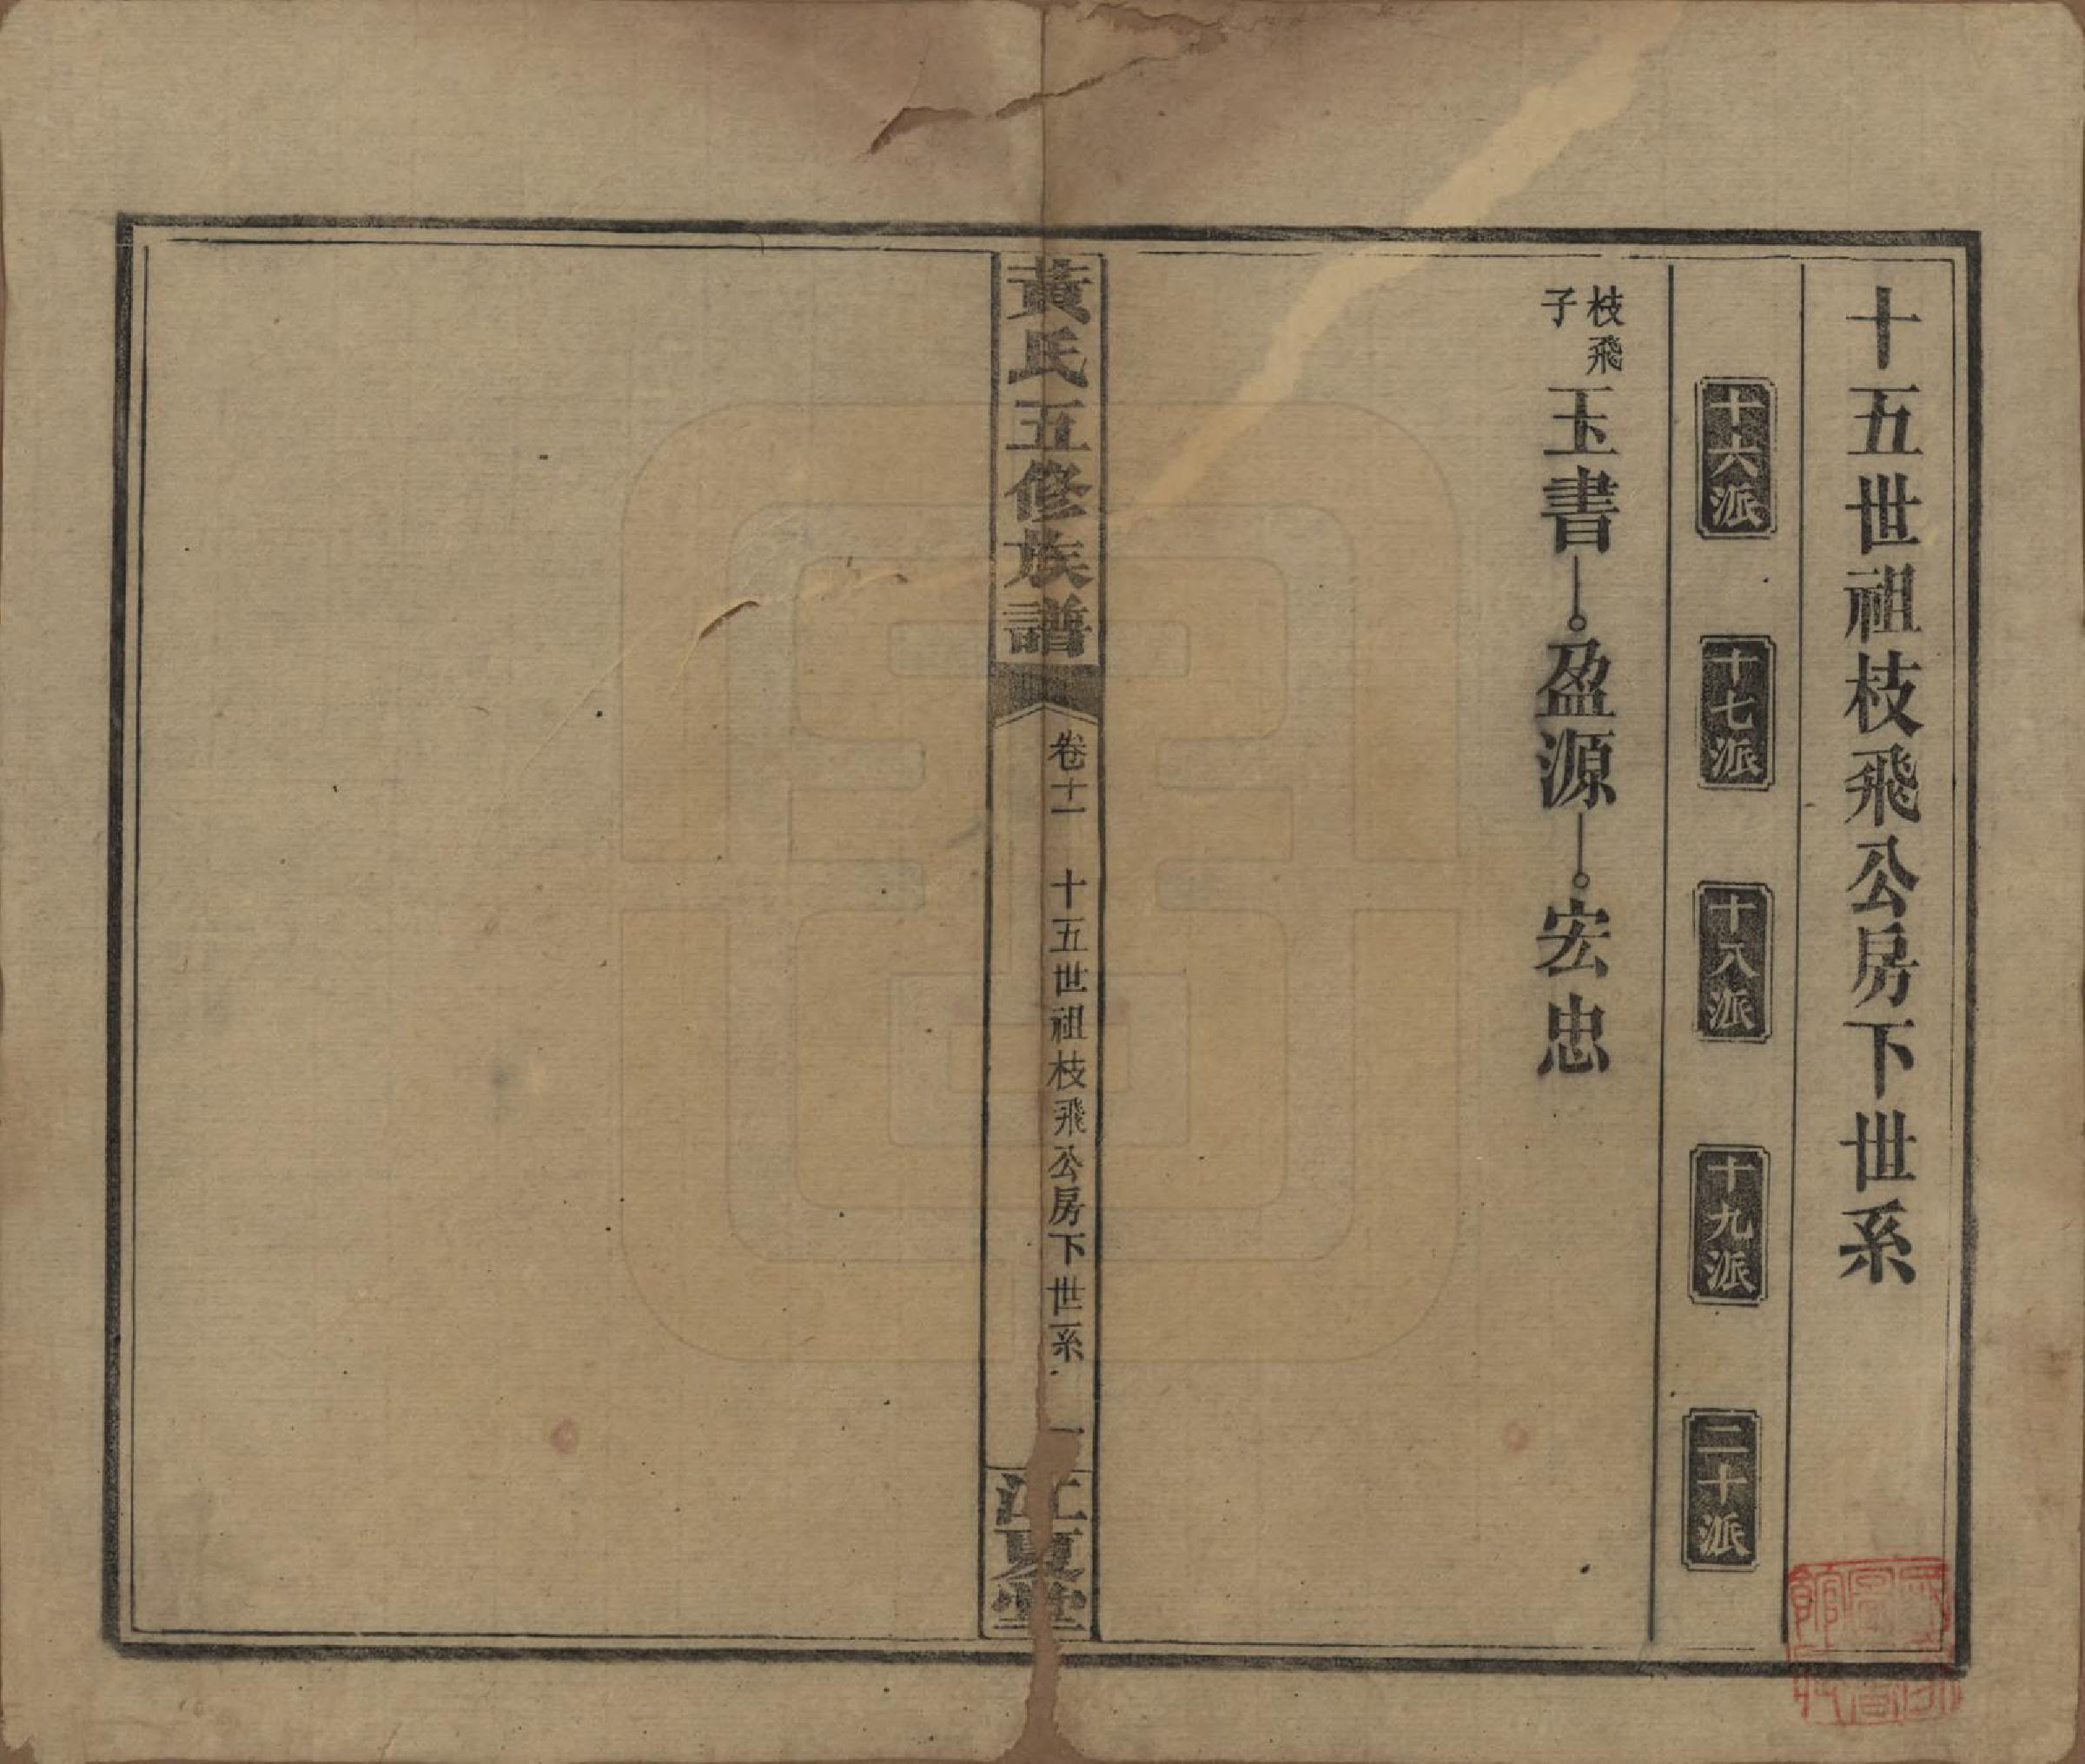 十五世祖枝飛公房下世系
十六派
十七派
十八派
十九派
二十派
枝飛
子
玉書
盈源
宏忠
黃氏五修族譜
卷十一
十五世祖枝飛公房下世系
一
江夏堂